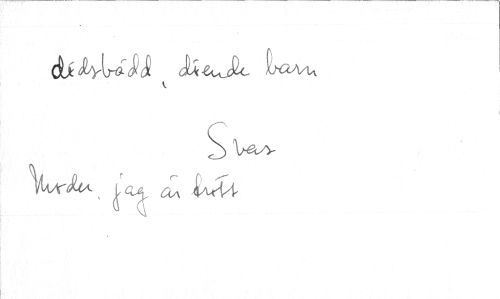 dödsbädd, döende barn
Svar
Moder, jag är trött